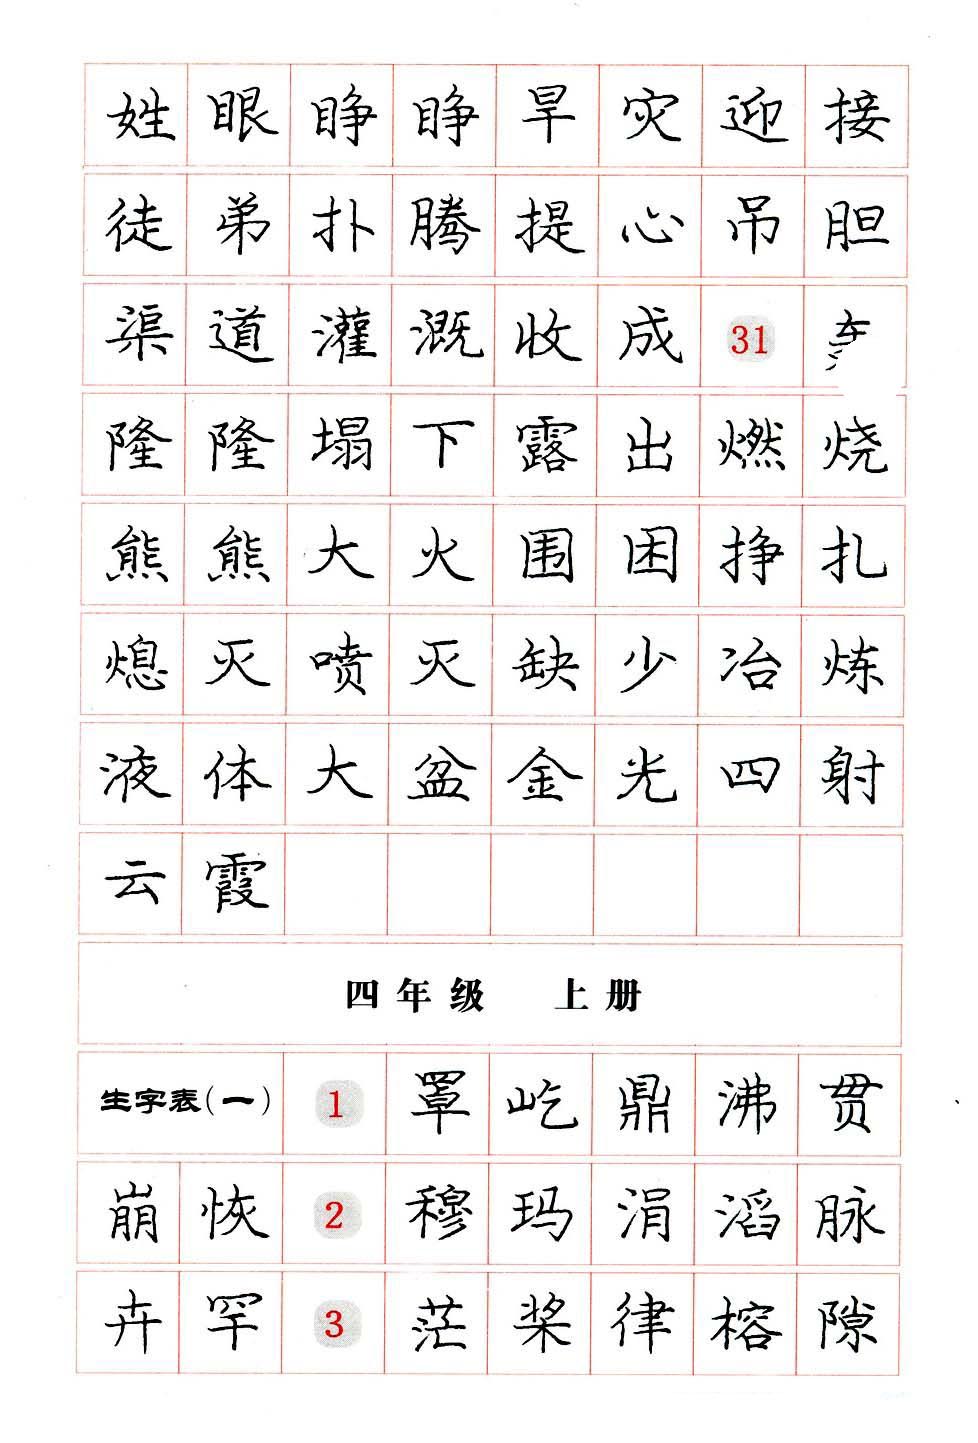 姓眼睁睁旱灾迎接
徒弟扑腾提心吊胆
渠道灌溉收成 31
隆隆塌下露出燃烧
熊熊大火围困挣扎
熄灭喷灭缺少冶炼
液体大盆金光四射
云霞
四年级 上册
生字表(一) 1 罩屹鼎沸贯
崩恢 2 穆玛涓滔脉
卉罕 3 茫桨律榕隙